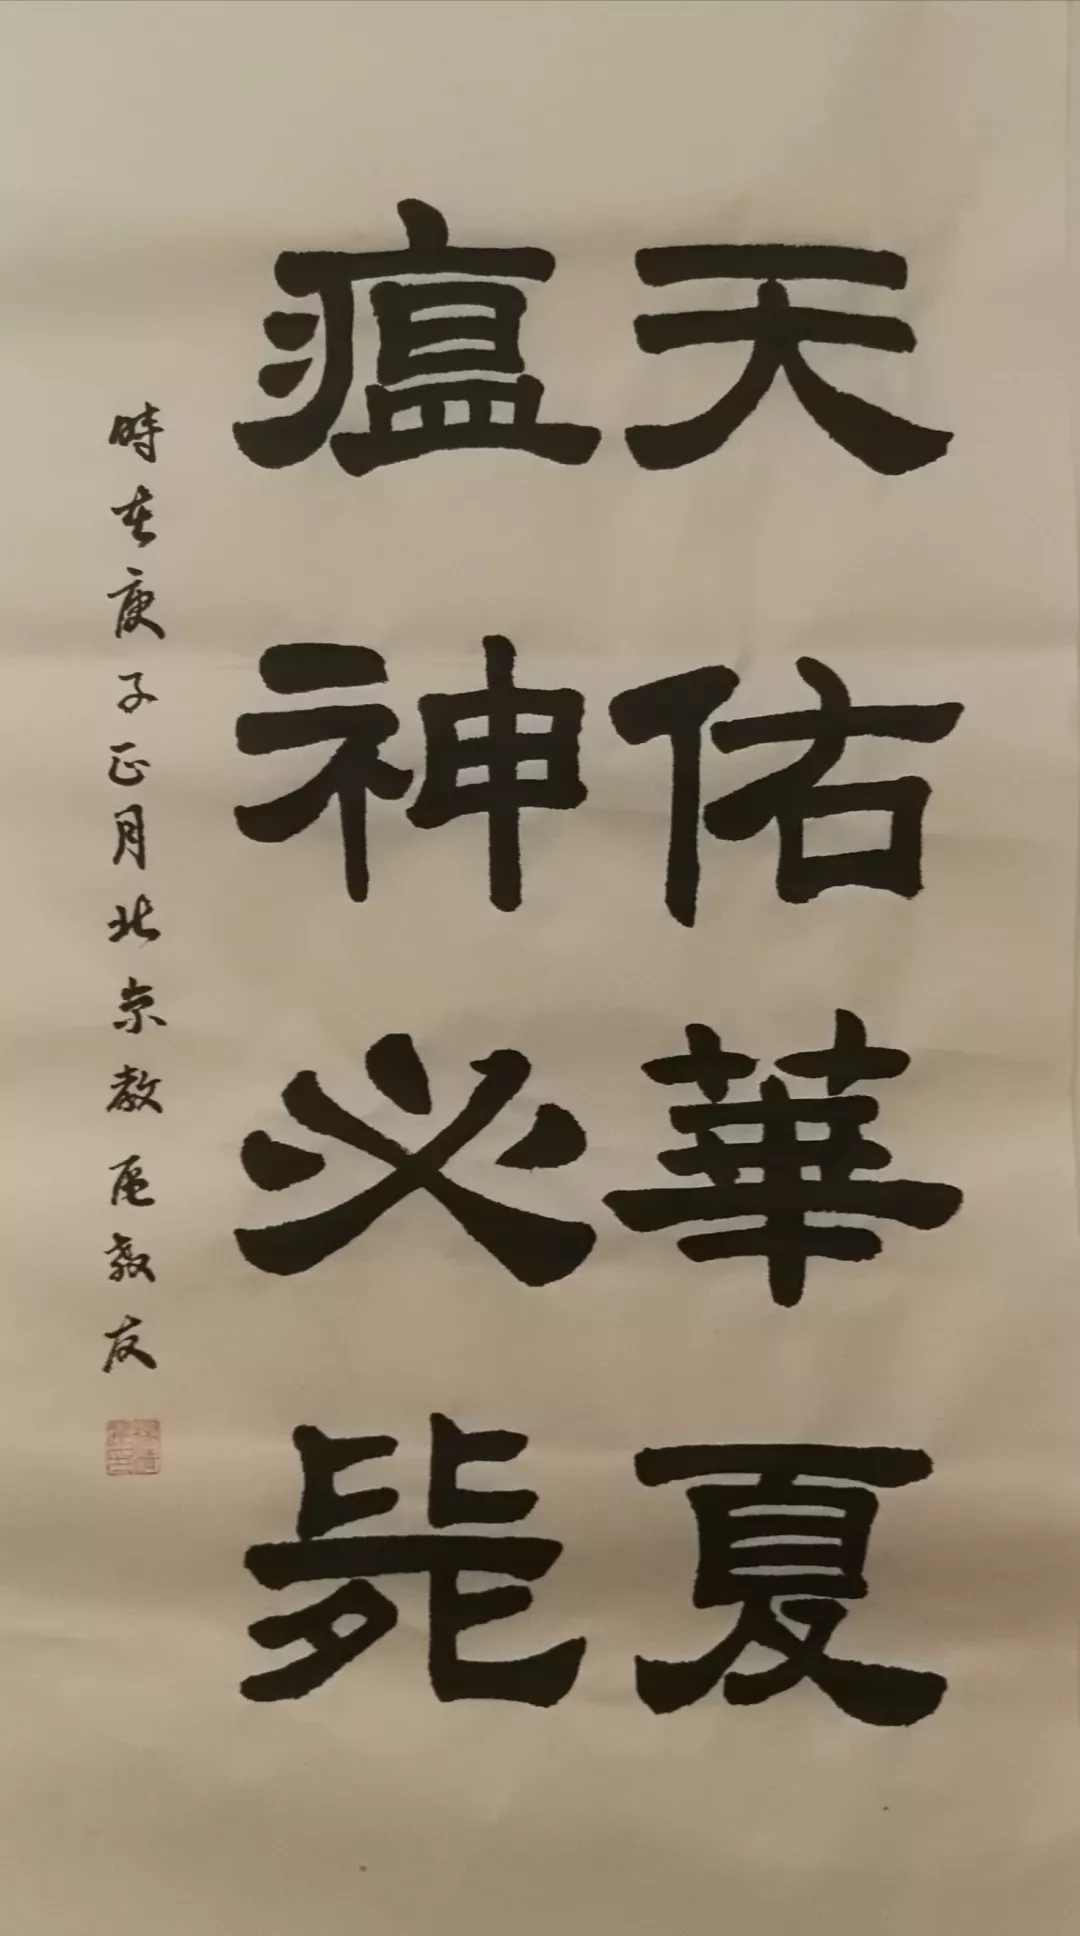 天佑華夏
瘟神必毙
時在庚子正月北京教區教友